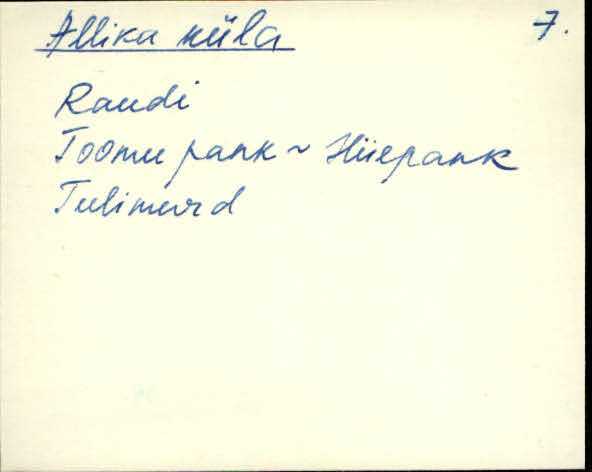 Allika küla 7.
Raudi
Toomu pank ~ Hiiepank
Tulimurd